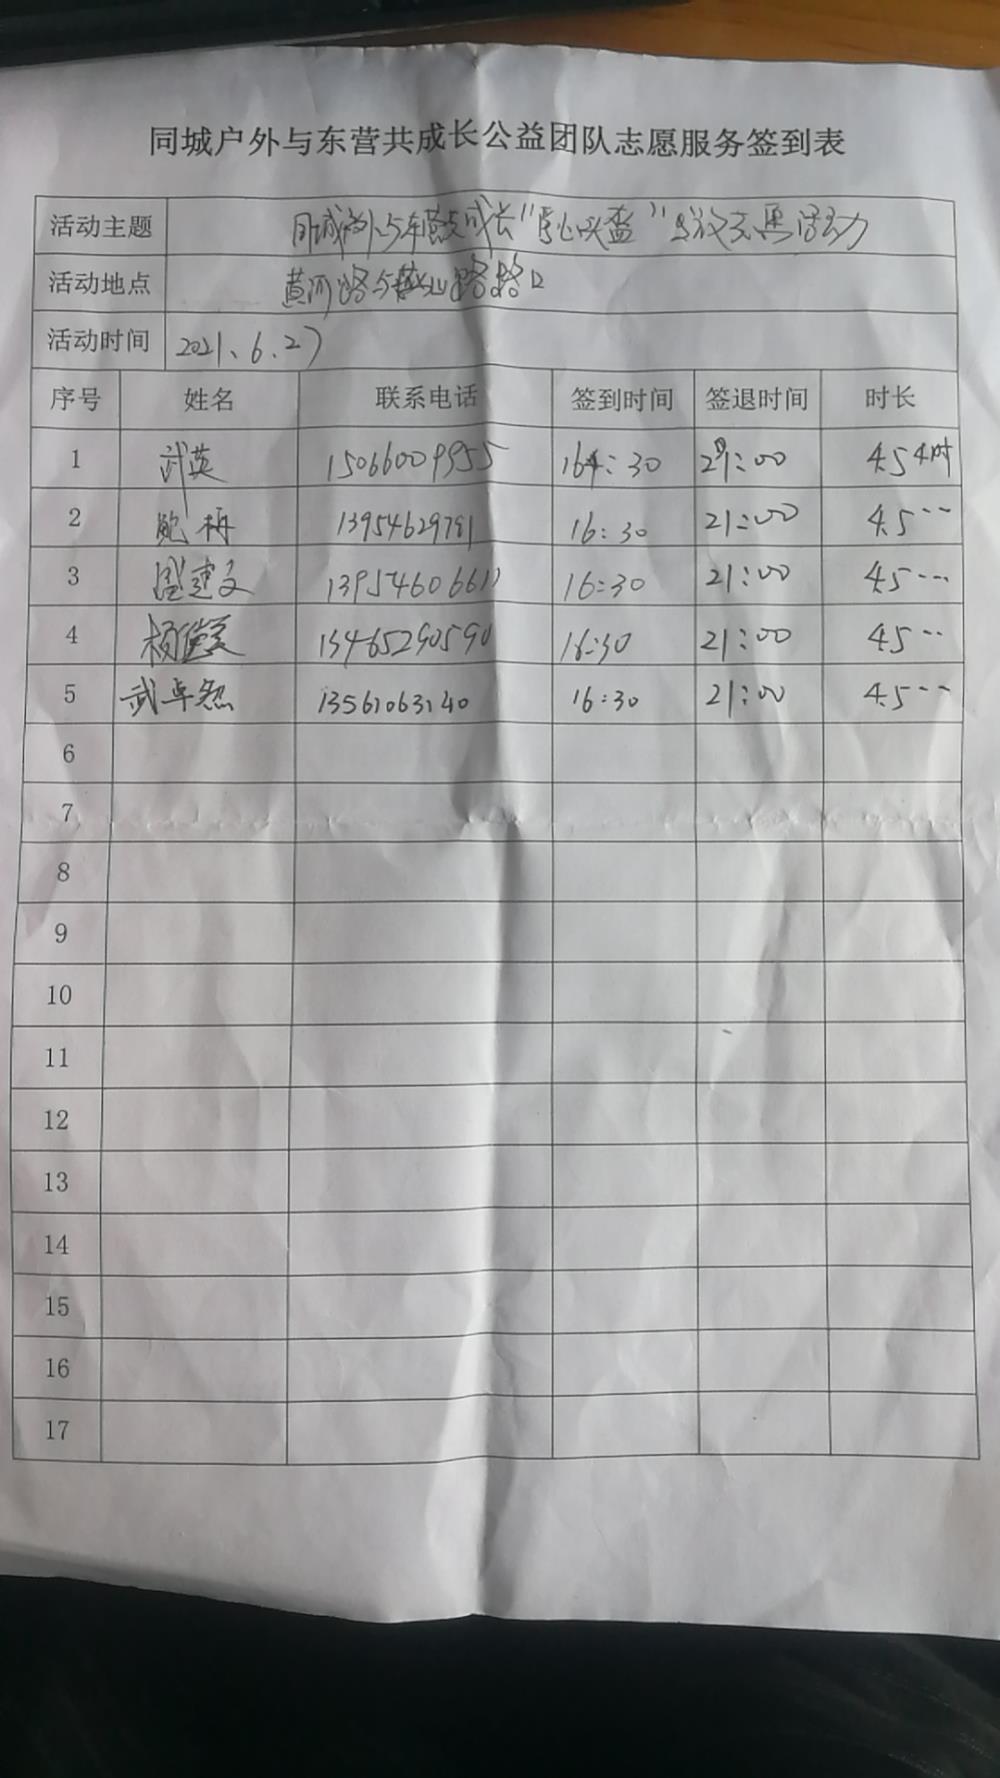 同城户外与东营共成长公益团队志愿服务签到表
活动主题 同城户外与东营共成长"爱心义盔"
活动地点 黄河路与路路口
活动时间 2021、6、27
序号 姓名 联系电话 签到时间 签退时间 时长
1 武英 15066009955 16:30 21:00 4.5小时
2 鲍梅 13954629781 16:30 21:00 4.5……
3 周建文 13954606611 16:30 21:00 4.5……
4 杨 13465290590 16:30 21:00 4.5……
5 武卓然 13561063140 16:30 21:00 4.5……
6
7
8
9
10
11
12
13
14
15
16
17